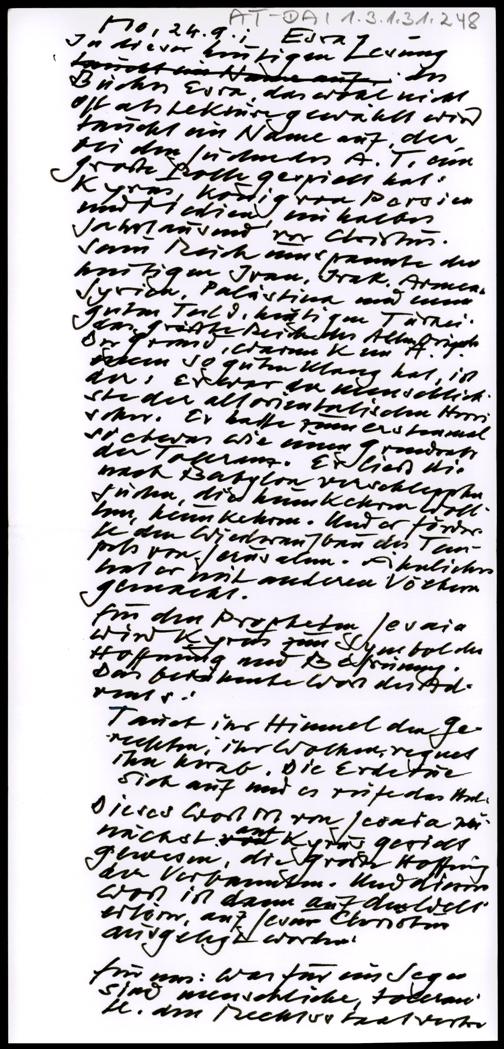 AT-DAI 1.3.1.31.248
Mo, 24.9.: Esra 1
In dieser heutigen Lesung
taucht ein Name auf. des
Buches Esra, das wohl nicht
oft als Lektüre gewählt wird
taucht ein Name auf, der
bei den Juden des A.T. eine
große Rolle gespielt hat:
Kyros, König von Persien
und Medien, ein halbes
Jahrtausend vor Christus.
Sein Reich umspannte den
heutigen Iran, Irak, Armen.
Syrien, Palästina und einen
guten Teil d. heutigen Türkei.
das größte Reich des
Der Grund, warum K im A.T.
einen so guten Klang hat, ist
der: Er war der menschlich-
ste der altorientalischen Herr-
scher. Er hatte zum erstenmal
so etwas wie einen Grundsatz
der Toleranz. Er ließ die
nach Babylon verschleppten
Juden, die heimkehren woll-
ten, heimkehren. Und er förder-
te den Wiederaufbau des Tem-
pels von Jerusalem. Ähnliches
hat er mit anderen Völkern
gemacht.
Für den Propheten Jesaia
wird Kyros zum Symbol der
Hoffnung und Befreiung.
Das bekannte Wort des Ad-
vents:
Tauet ihr Himmel den Ge-
rechten, ihr Wolken, regnet
ihn herab. Die Erde tue
sich auf und es reife das Heil
Dieses Wort ist von Jesaia zu-
nächst auf Kyros gesagt
gewesen, die große Hoffnung
der Verbannten. Und dieses
Wort ist dann auf den Welt-
erlöser, auf Jesus Christus
ausgelegt worden.
Für uns: Was für ein Segen
sind menschliche, toleran-
te, den Rechtsstaat